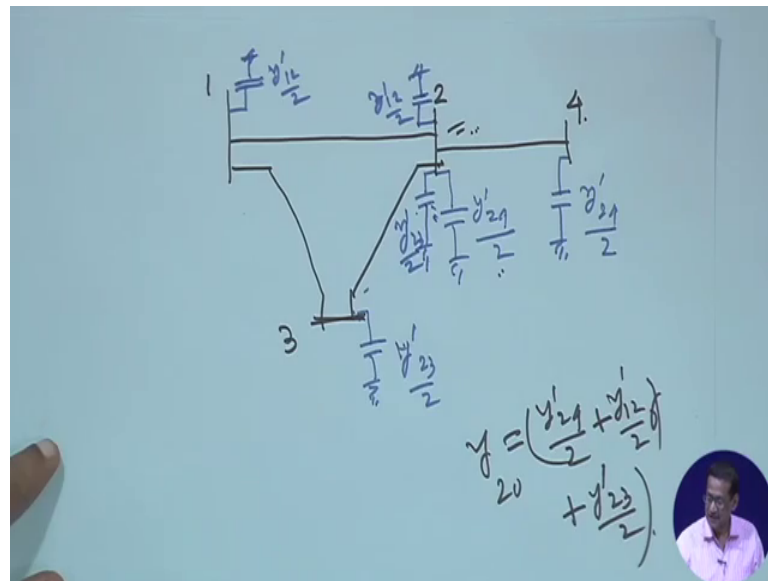 1
y'12/2
y'12/2
2
4
y'23/2
y'24/2
y'24/2
3
y'23/2
y20 = (y'24/2 + y'12/2
+ y'23/2).